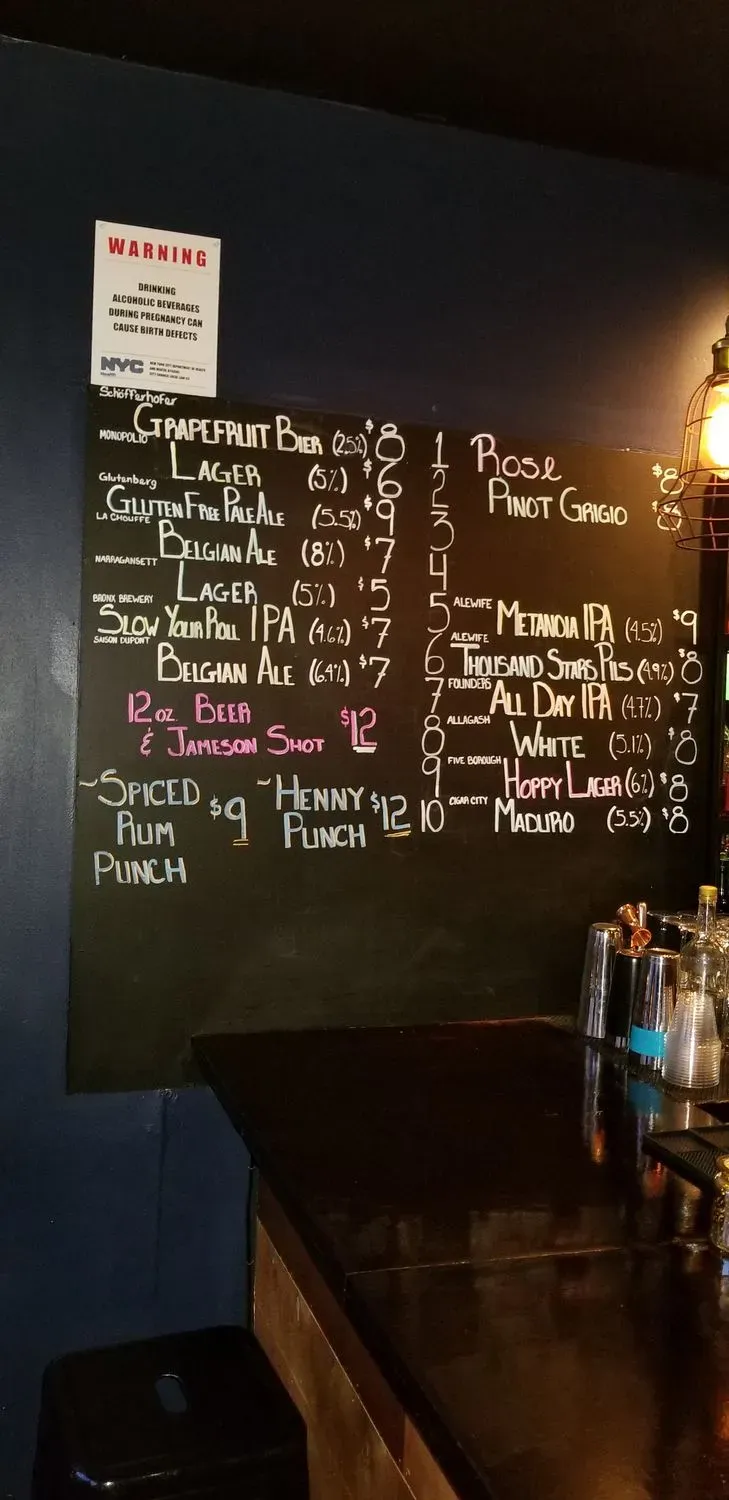 WARNING
DRINKING
ALCOHOLIC BEVERAGES
DURING PREGNANCY CAN
CAUSE BIRTH DEFECTS
NYC
Health
NEW YORK CITY DEPARTMENT OF HEALTH
AND MENTAL HYGIENE
Schöfferhofer
GRAPEFRUIT BIER (2.5%) $8
MONOPOLIO
LAGER (5%) $6
Glutenberg
GLUTEN FREE PALE ALE (5.5%) $9
LA CHOUFFE
BELGIAN ALE (8%) $7
NARRAGANSETT
LAGER (5%) $5
BRONX BREWERY
SLOW YOUR ROLL IPA (4.6%) $7
SAISON DUPONT
BELGIAN ALE (6.4%) $7
12 OZ BEER
& JAMESON SHOT $12
~SPICED
RUM
PUNCH
$9
~HENNY
PUNCH
$12
1 Rosé $8
2 PINOT GRIGIO
3
4
5 ALEWIFE METANOIA IPA (4.5%) $9
6 ALEWIFE THOUSAND STARS PILS (4.9%) $8
7 FOUNDERS ALL DAY IPA (4.7%) $7
8 ALLAGASH WHITE (5.1%) $8
9 FIVE BOROUGH HOPPY LAGER (6%) $8
10 CIGAR CITY MADURO (5.5%) $8